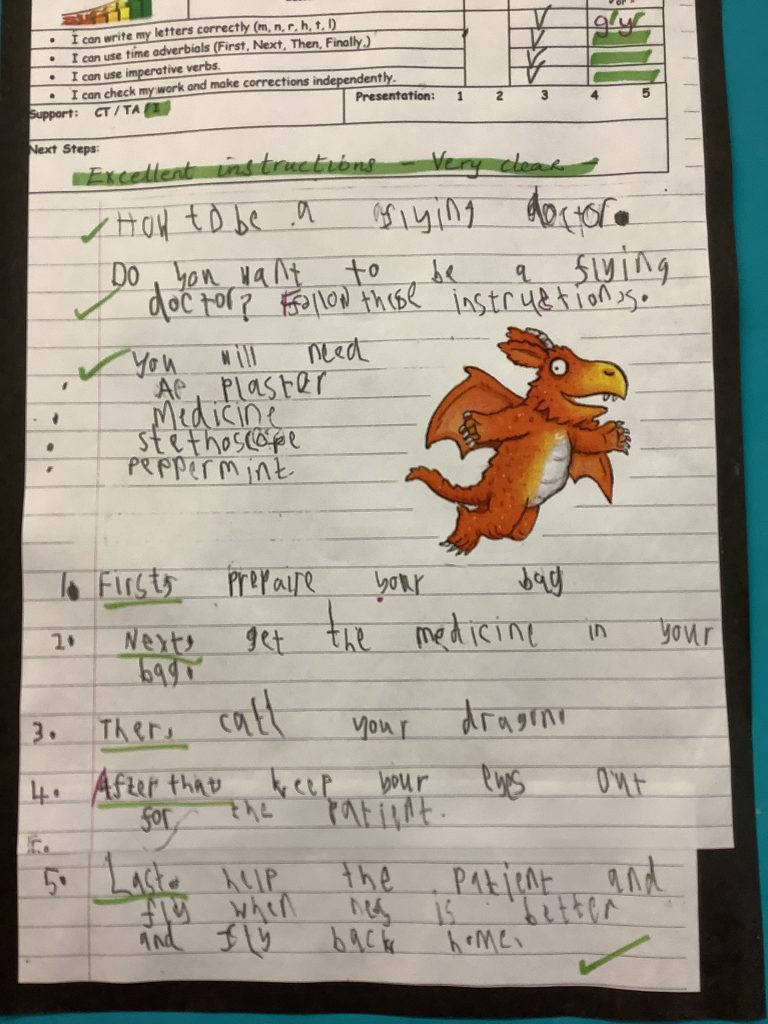 • I can write my letters correctly (m, n, r, h, t, l)
• I can use time adverbials (First, Next, Then, Finally,)
• I can use imperative verbs.
• I can check my work and make corrections independently.
Support: CT / TA / I
Presentation: 1 2 3 4 5
Next Steps:
Excellent instructions - Very clear -
How to be a flying doctor.
Do you want to be a flying
doctor? Follow these instructions.
You will need
• plaster
• Medicine
• stethoscope
• peppermint.
1. First, prepaire your bag
2. Next, get the medicine in your
bag.
3. Then, call your dragon.
4. After that keep your eyes out
for the patient.
5. Last. help the patient and
fly when is better
and fly back home.